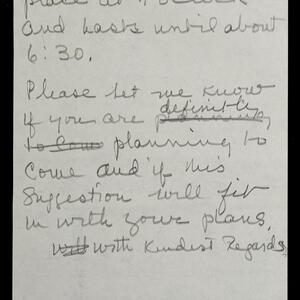 place at 4 oclock
and lasts until about
6:30.
Please let me know
definitely
if you are planning
to come planning to
come and if this
suggestion will fit
in with your plans.
will with kindest regards,